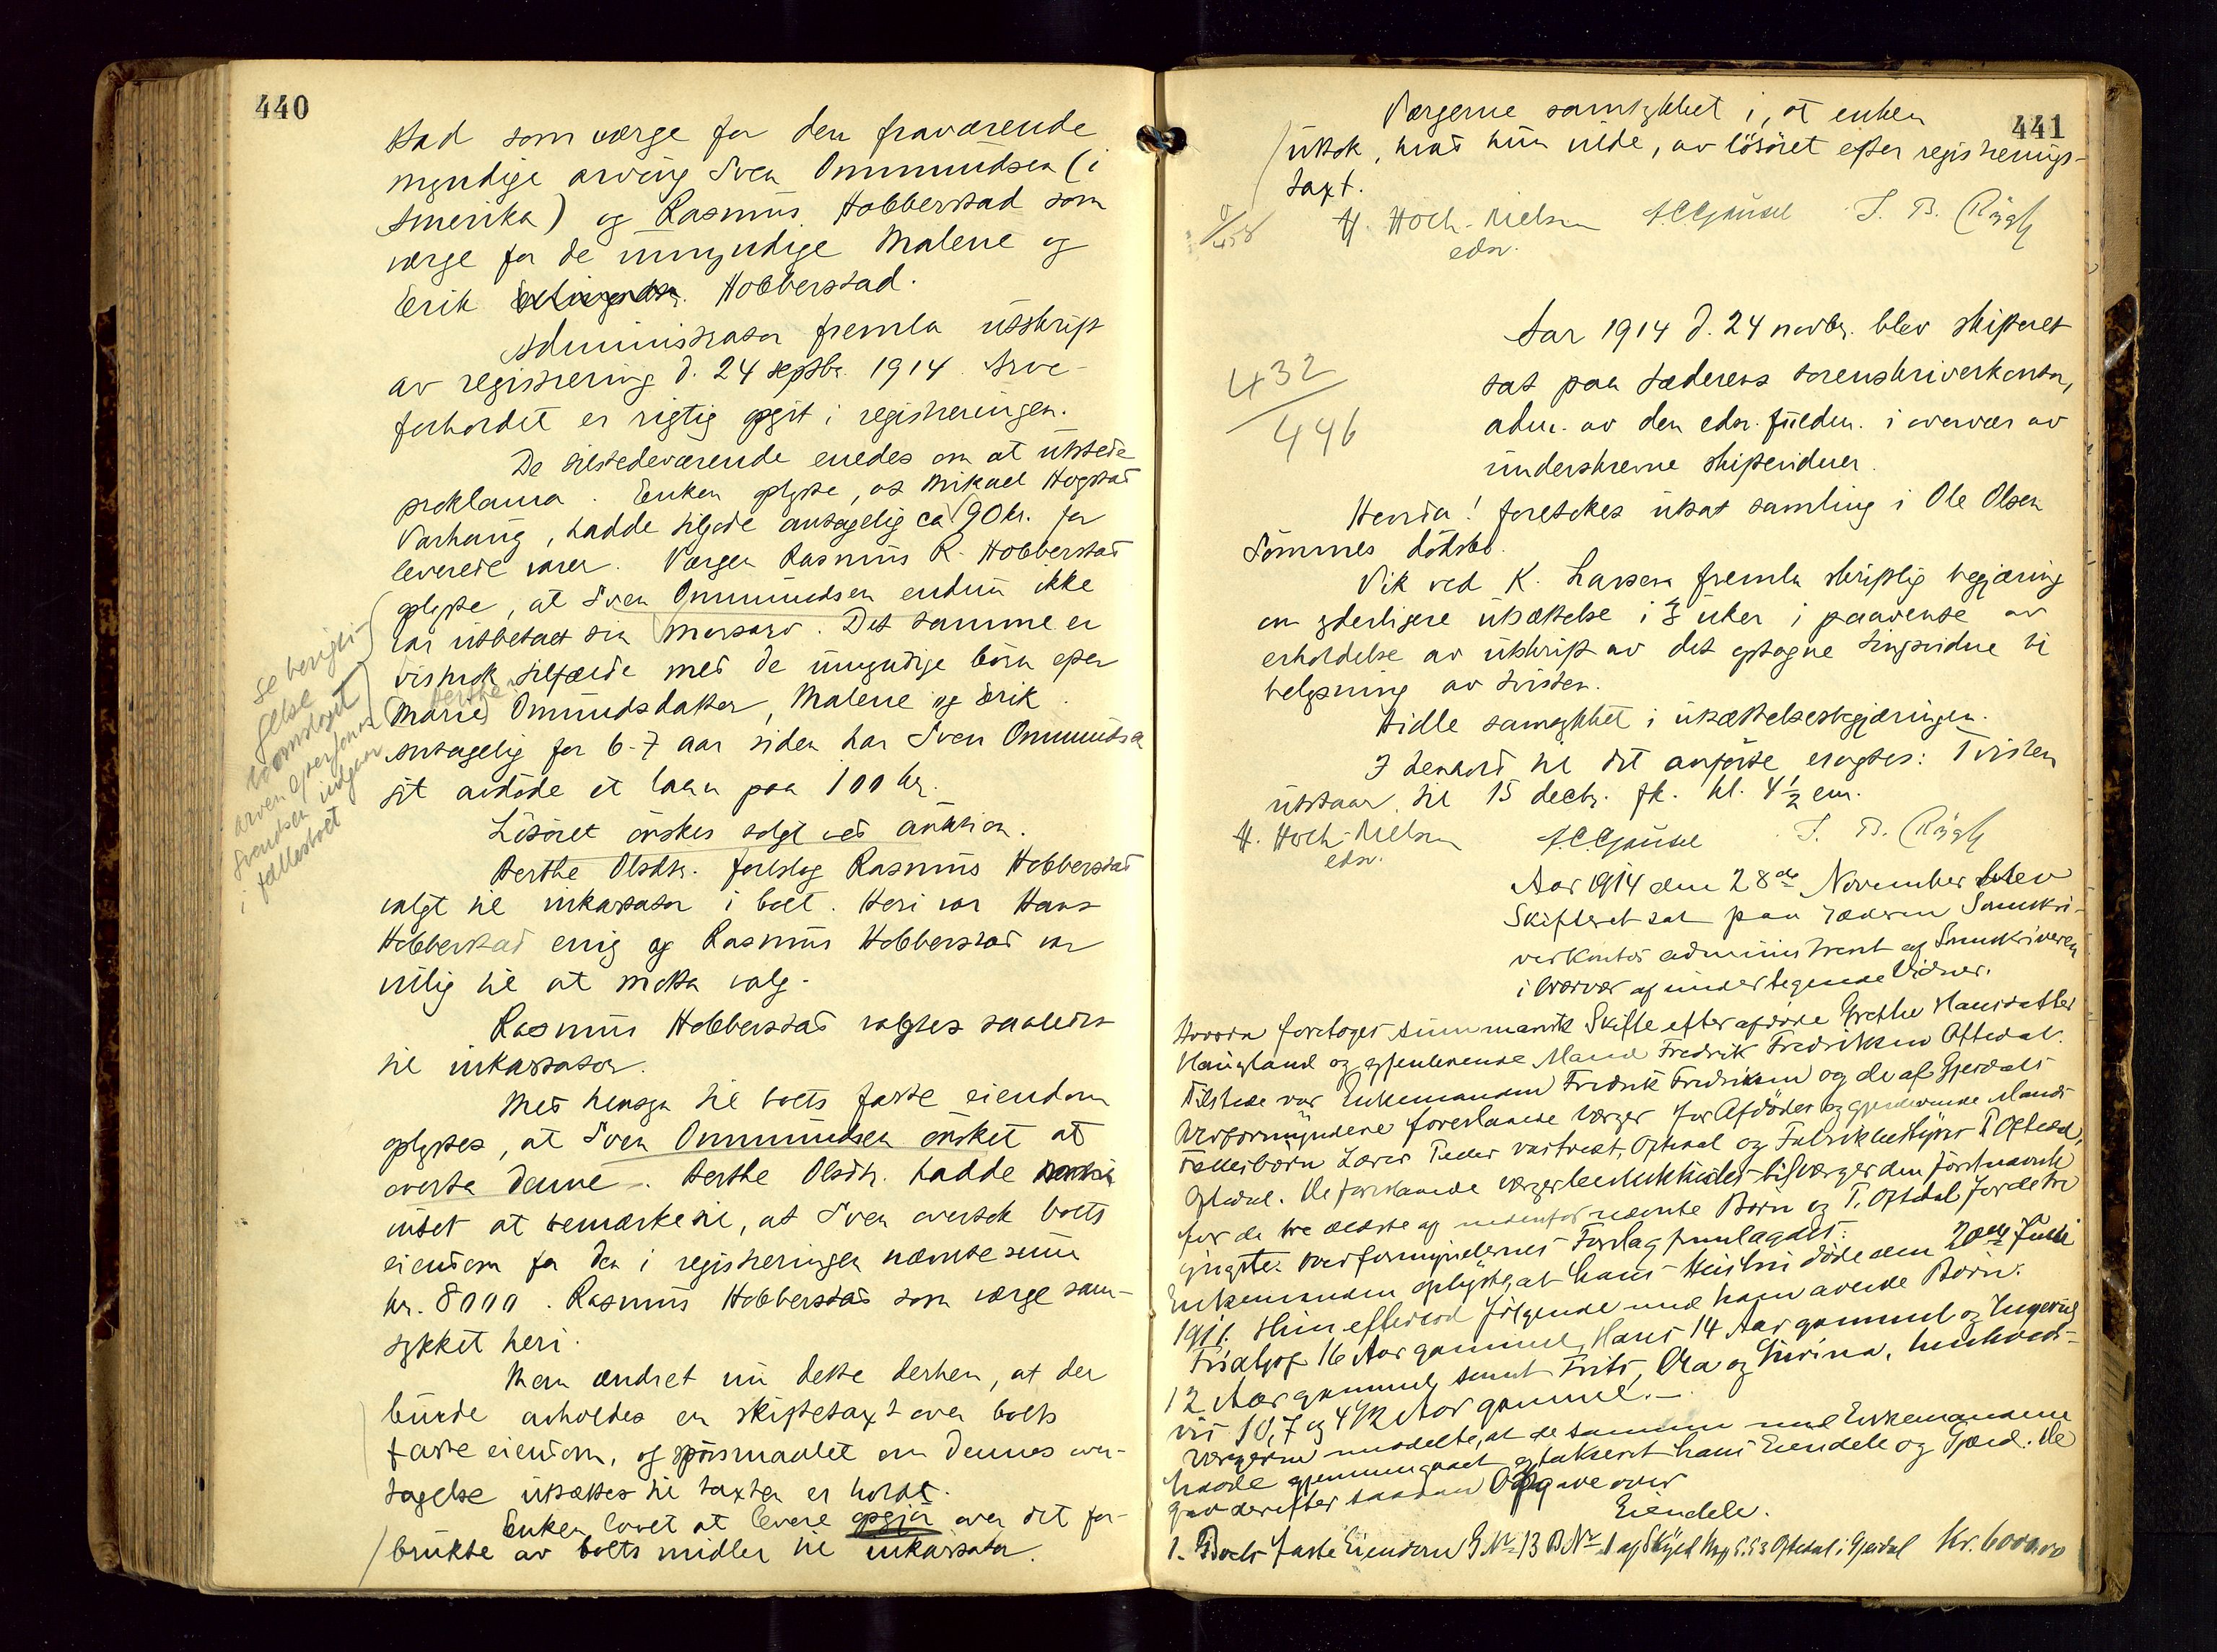 440
stad som værge for den fraværende
myndige arving Sven Ommundsen (i
Amerika) og Rasmus Hobberstad som
værge for de umyndige Malene og
Erik Hobberstad.
Administrator fremla utskrift
av registrering d. 24 septbr. 1914. Arve-
forholdet er rigtig opgit i registreringen.
De tilstedeværende enedes om at utstede
proklama. Enken oplyste, at Mikael Hogstad
Varhaug, hadde tilgode antagelig ca 90 kr. for
leverede varer. Værgen Rasmus R. Hobberstad
oplyste, at Sven Ommundsen endnu ikke
har utbetalt sin morsarv. Det samme er
visnok tilfælde med de umyndige børn efter
Marie Omundsdatter, Malene og Erik.
Berthe
Antagelig for 6-7 aar siden har Sven Ommundsen
git avdøde et laan paa 100 kr.
Løsøret ønskes solgt ved auktion.
Berthe Olsdtr. foreslog Rasmus Hobberstad
valgt til inkassator i boet. Heri var Hans
Hobberstad enig og Rasmus Hobberstad var
villig til at motta valg.
Rasmus Hobberstad valgtes saaledes
til inkassator.
Med hensyn til boets faste eiendom
oplystes, at Sven Ommundsen ønsket at
overta denne. Berthe Olsdtr. hadde
intet at bemærke til, at Sven overtok boets
eiendom for den i registreringen nævnte sum
kr. 8000. Rasmus Hobberstad som værge sam-
tykket heri.
Man ændret nu dette derhen, at der
burde avholdes en skiftetaxt over boets
faste eiendom, og spørsmaalet om dennes over-
tagelse utsættes til taxten er holdt.
Enken lovet at levere opgjør over det for-
brukte av boets midler til inkassator.
se berigti-
gelse
arven efter
Svendsen indgaar
i fællesboet
441
Værgerne samtykket i, at enken
uttok, hvad hun vilde, av løsøret efter registrerings-
taxt.
H. Hoch-Nielsen
edsv.
Aar 1914 d. 24 novbr. blev skifteret
sat paa Jæderens sorenskriverkontor,
adm. av den edsv. fuldm. i overvær av
underskrevne skiftevidner.
432
446
Hvorda! foretokes utsat samling i Ole Olsen
Sømmes dødsbo.
Vik ved K. Larsen fremla skriftlig begjæring
om yderligere utsættelse i 3 uker i paavente av
erholdelse av utskrift av det optagne tingsvidne til
belysning av tvisten.
Hidle samtykket i utsættelsesbegjæringen.
I henhold til det anførte eragtes: Tvisten
utstaar til 15 decbr. fk. kl. 4 1/2 em.
H. Hoch-Nielsen
edsv.
Aar 1914 den 28de November blev
Skifteret sat paa Jæderen Sorenskri-
verkontor administreret af Sorenskriveren
i Overvær af undertegnede Vidner.
Hvorda foretoges summarisk Skifte efter afdøde Grethe Hansdatter
Haugland og gjenlevende Mand Fredrik Fredriksen Oftedal.
Tilstede var Enkemanden Fredrik Fredriksen og de af Gjesdals
Overformyndere foreslaaede Værger for Afdødes og gjenlevende Mands
Fællesbørn Lærer Peder Oftedal og Fabrikbestyrer T. Oftedal,
Oftedal. De foreslaaede Værger førstnævnte
for de tre ældste af nedenfor nævnte Børn og T. Oftedal for de tre
yngste. Overformyndernes Forslag fremlagdes.
Enkemanden oplyste, at hans Hustru døde den 20de Juli
1911. Hun efterlod følgende med ham avlede Børn:
Fridtjof 16 Aar gammel, Hans 14 Aar gammel og Ingevald
12 Aar gammel samt Frits, Ola og Gurina, henholds-
vis 10, 7 og 4 1/2 Aar gammel.
Værgerne meddelte, at de sammen med Enkemanden
havde gjennemgaaet og takseret hans Eiendele og Gjæld. De
gav derefter saadan Opgave over
Eiendele.
1. Boets faste Eiendom G.No 13 B.No 1 af Skyld Mrk. 5.53 Oftedal i Gjesdal Kr. 6000.00